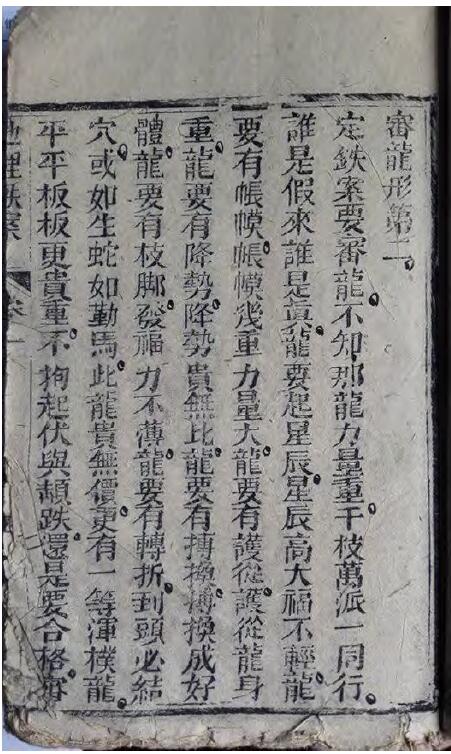 審龍形第二
定鉄案要審龍不知那龍力量重千枝萬派一同行
誰是假來誰是真龍要起星辰星辰高大福不輕龍
要有帳幙帳幙幾重力量大龍要有護從護從龍身
重龍要有降勢降勢貴無比龍要有摶換摶換成好
體龍要有枝脚發福力不薄龍要有轉折到頭必結
穴或如生蛇如勒馬此龍貴無價更有一等渾樸龍
平平板板更貴重不拘起伏與頓跌還是要合格
地理鉄案
卷一